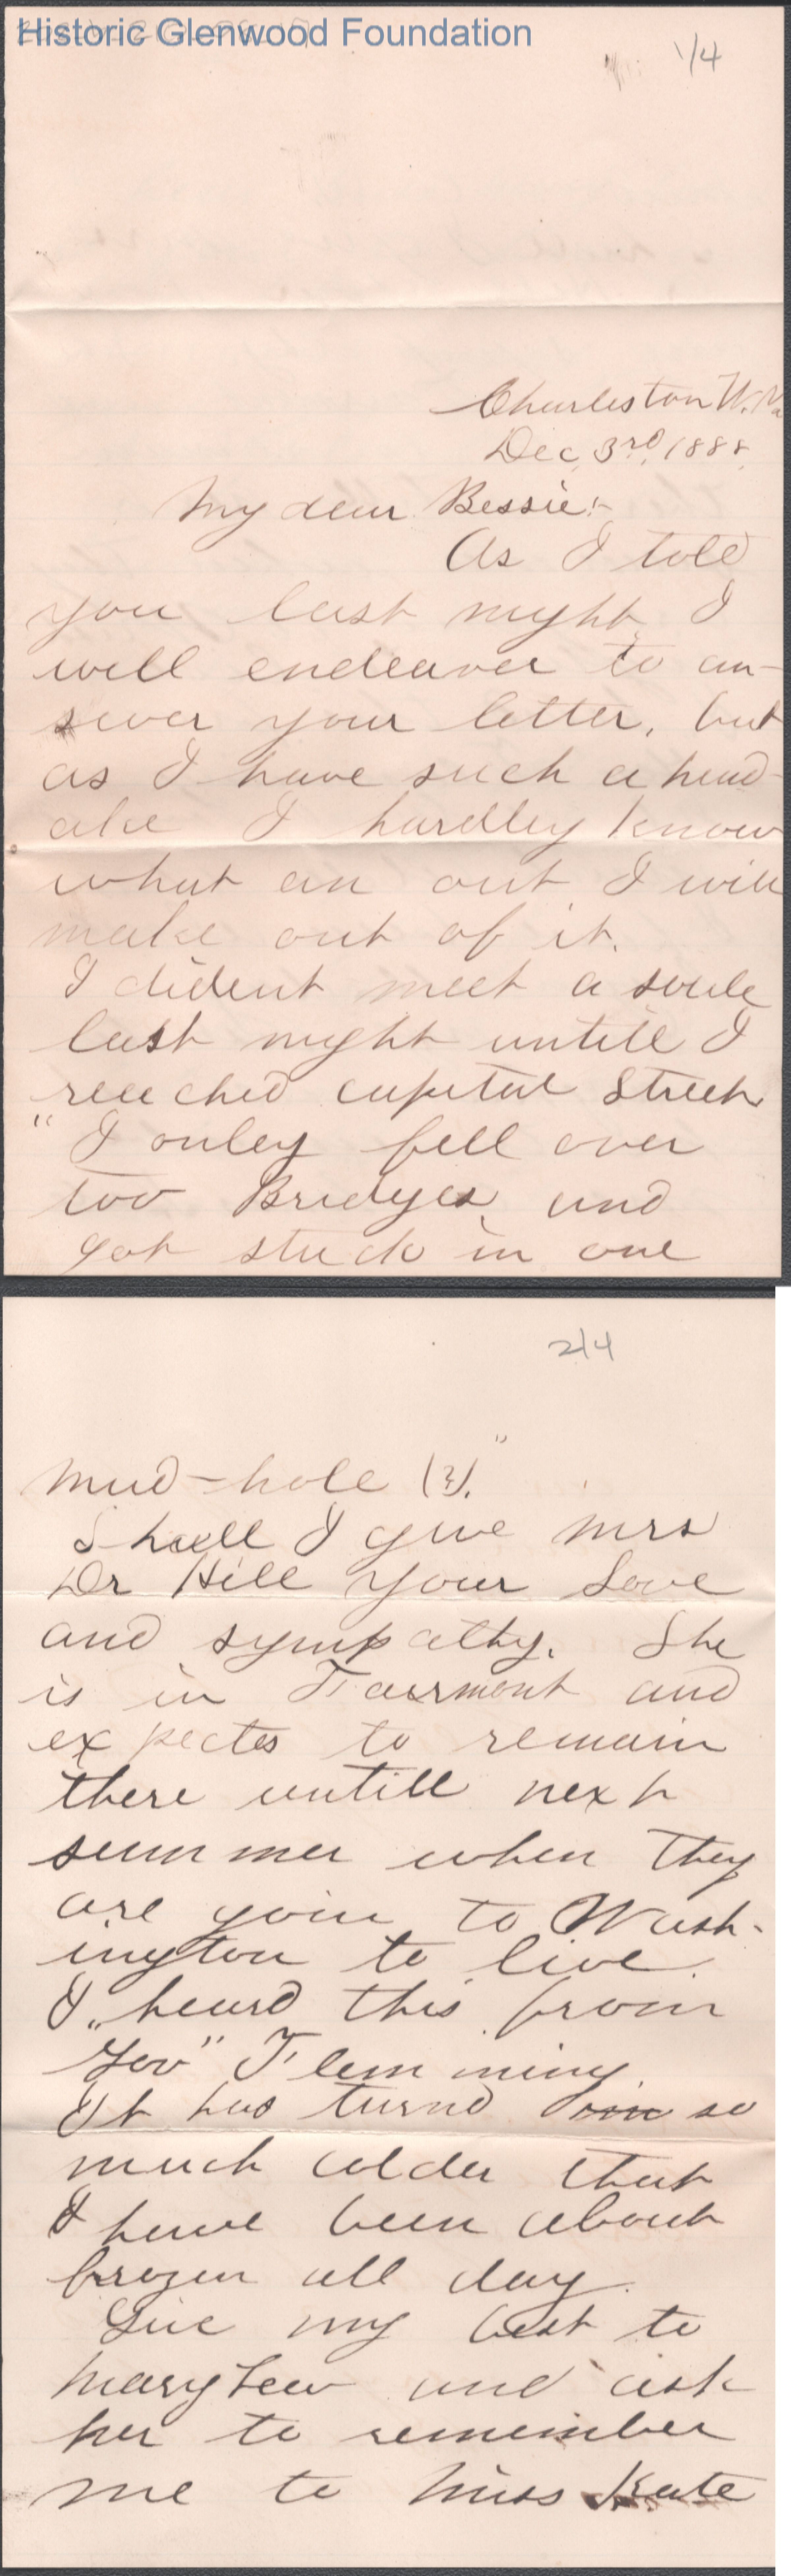 Historic Glenwood Foundation
1/4
Charleston W. Va
Dec 3rd, 1888.
My dear Bessie:-
As I told
you last night I
will endeaver to an-
swer your letter, but
as I have such a head-
ake I hardley know
what an out I will
make out of it.
I dident meet a soule
last night untill I
reached capitul Street
"I onley fell over
too Bridges, and
got stuck in one
2/4
mud-hole (?)."
Shall I give Mrs
Dr Hill your Love
and sympathy. She
is in Fairmont and
expectes to remain
there untill next
summer when they
are goin to Wash-
ington to live.
I heard this from
"Gov" Flemming.
It has turnd so
much colder that
I have been about
frozen all day.
Give my best to
Mary Lew and ask
her to remember
me to Miss Kate